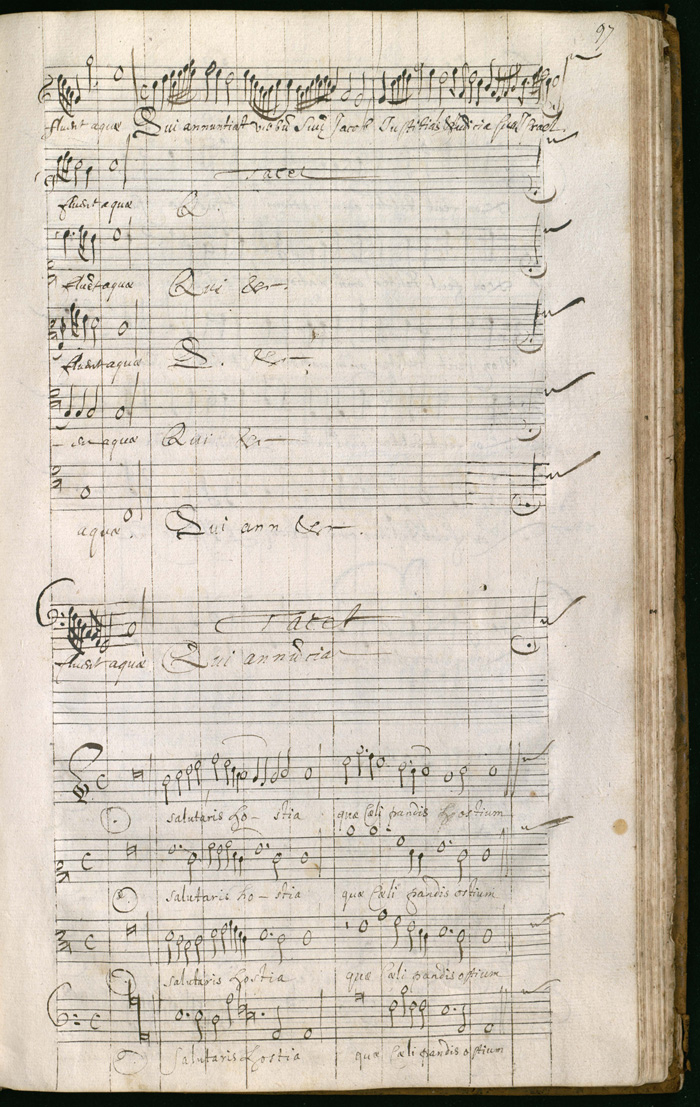 97
fluent aquæ Qui annuntiat verbũ Suũ Jacob Justitias & Judicia sua Israel.
Tacet
fluent aquæ Q.
fluẽt aquæ Qui &c.
fluent aquæ Q. &c.
- ent aquæ Qui &c
aquæ. Qui ann &c.
Tacet
fluent aquæ Qui annũcia
O. salutaris ho - stia quæ Cæli pandis hostium
O. salutaris ho - stia quæ Cæli pandis ostium
O. salutaris hostia quæ Cæli pandis ostium
O. Salutaris hostia quæ Cæli pandis ostium